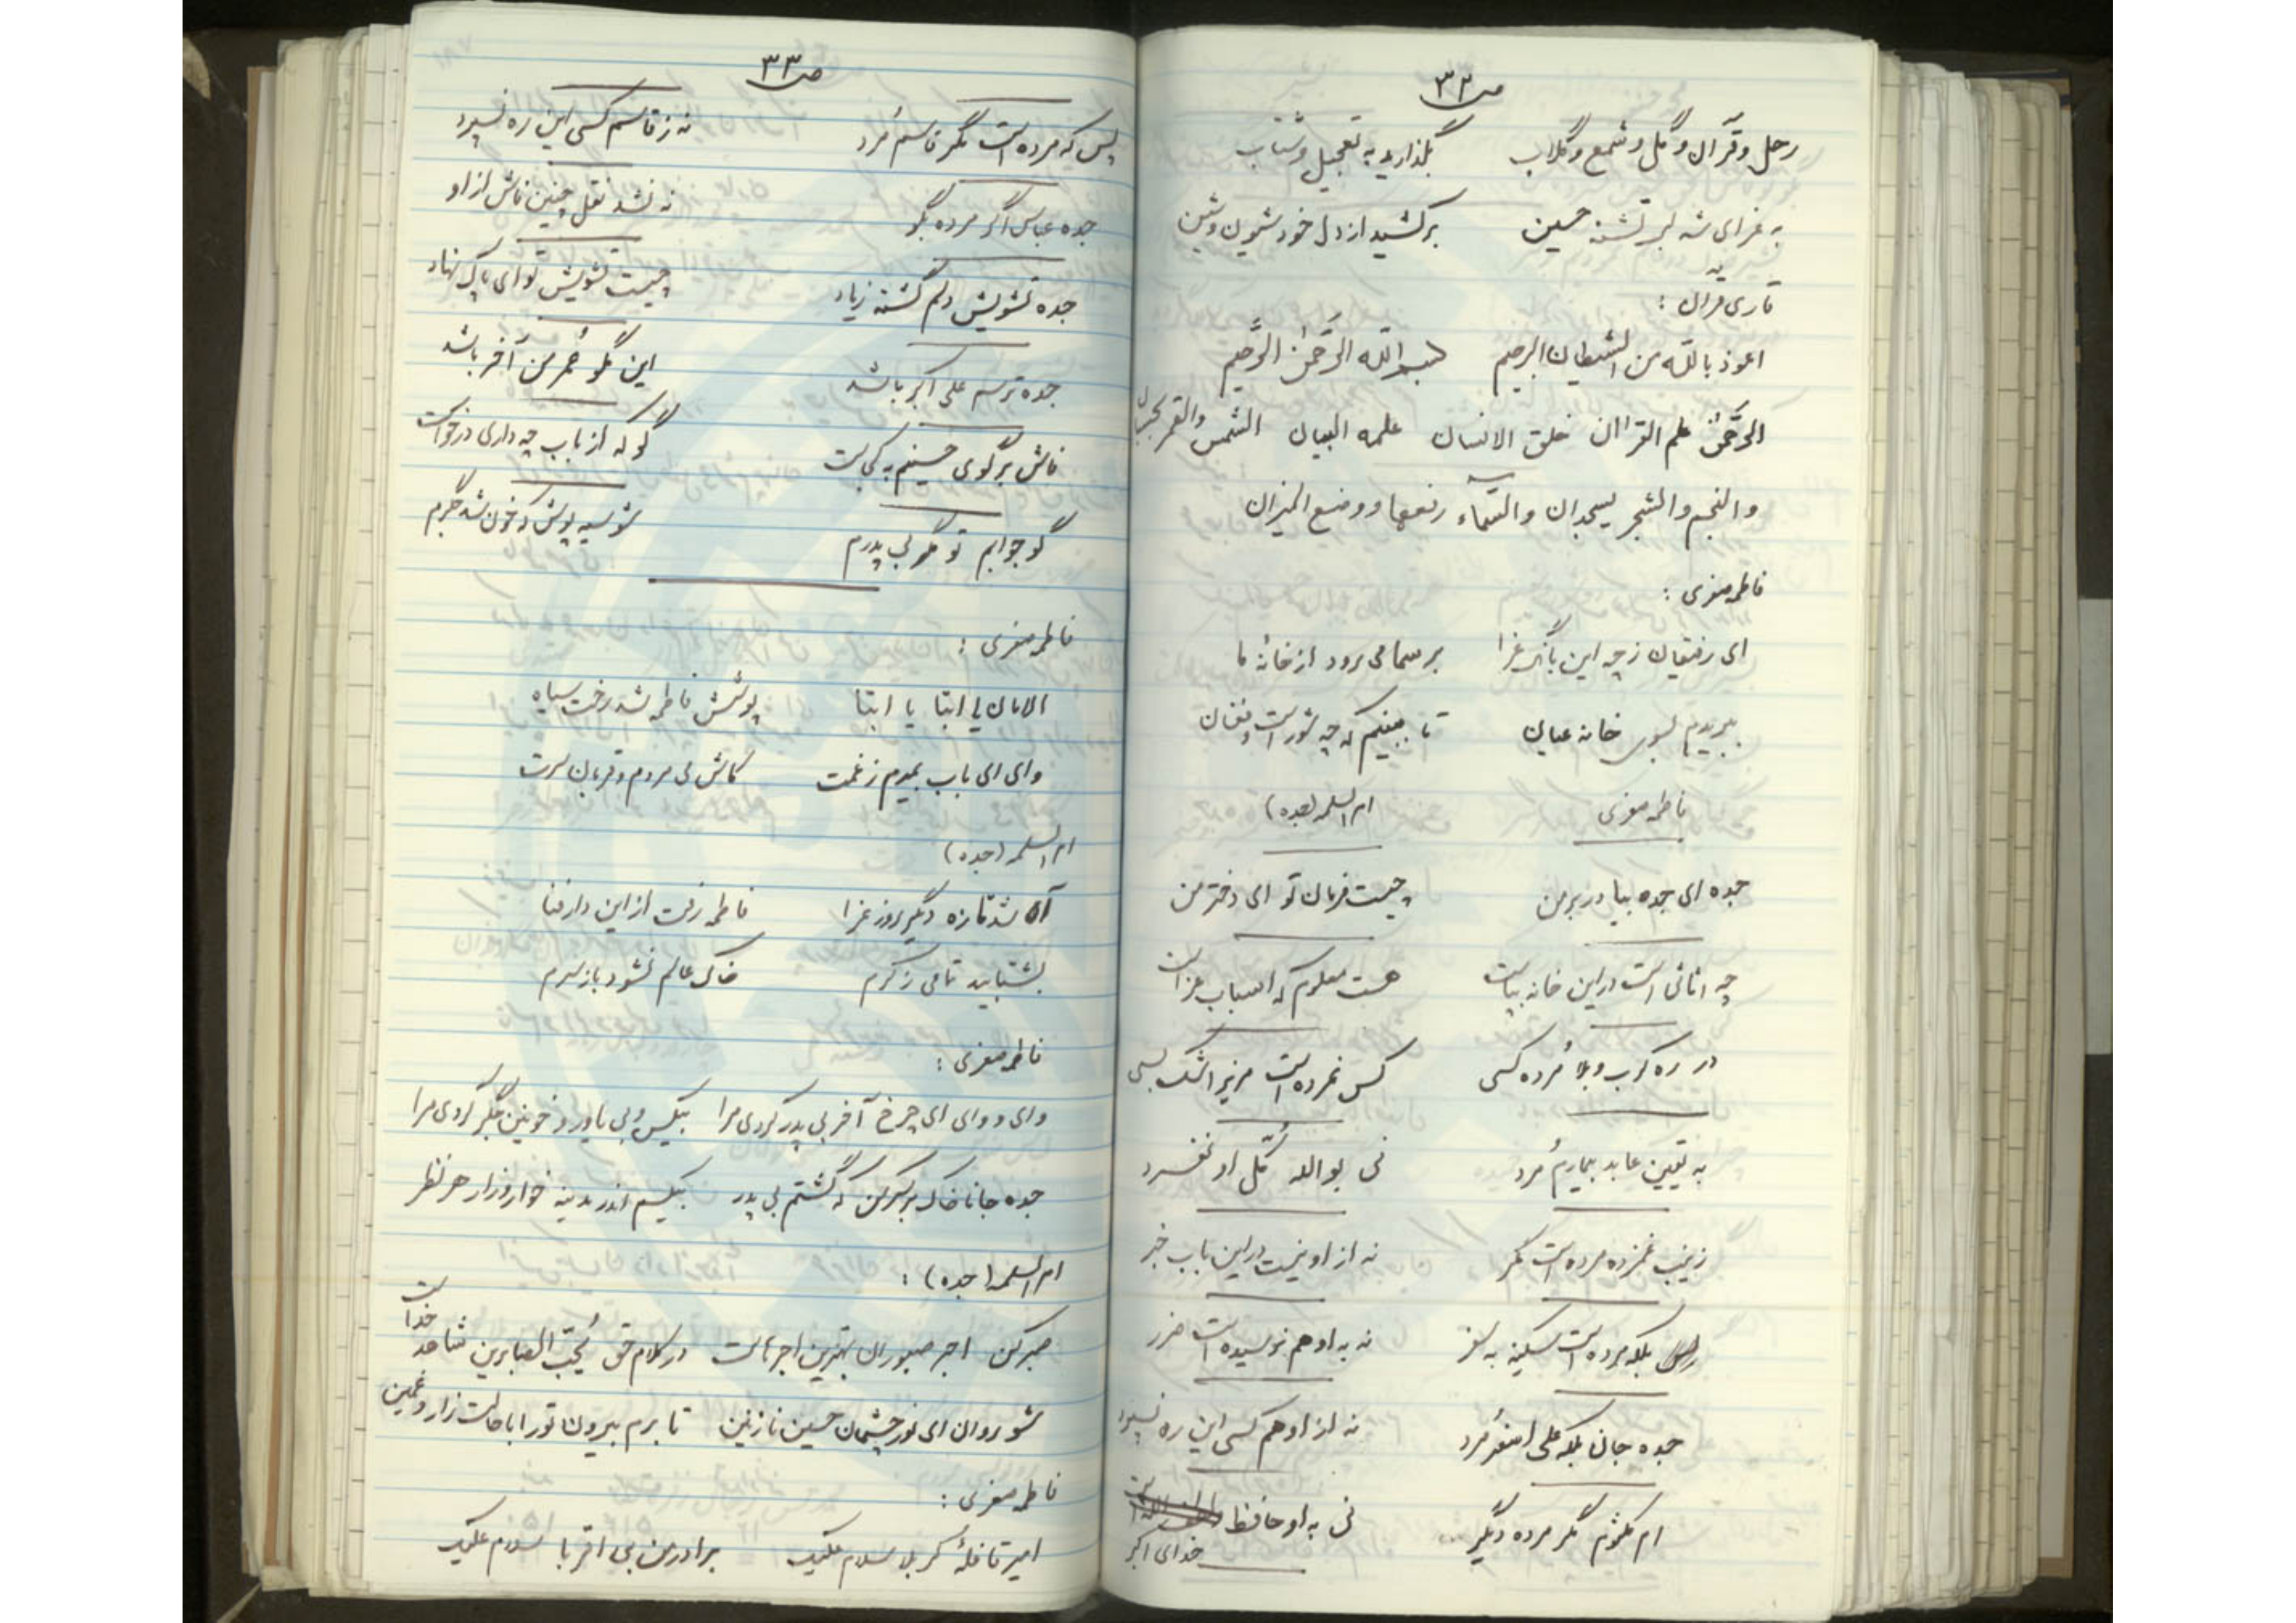 ص۳۲
رحل و قرآن و گل و شمع و گلاب بگذارید به تعجیل و شتاب
به عزای شه لب تشنه حسین برکشید از دل خود شیون و شین
قاری قرآن :
اعوذ بالله من الشیطان الرجیم بسم الله الرَّحمٰن الرَّحیم
الرَّحمٰن علم القرآان خلق الانسان علمه البیان الشمس والقمر بحسبان
والنجم والشجر یسجدان والسَّمآء رفعها و وضع المیزان
فاطمه صغری :
ای رفیقان ز چه این بانگ عزا بر سما می رود از خانهٔ ما
ببریدم بسوی خانه عیان تا ببینم که چه شور است و فغان
فاطمه صغری ام السلمه (جده)
جده ای جده بیا در بر من چیست فرمان تو ای دختر من
چه اثاثی است در این خانه بپاست هست معلوم که اسباب عزاست
در ره کرب و بلا مُرده کسی کس نمرده است مریز اشک بسی
به یقین عابد بیمارم مُرد نی بوالله گُل او نفسرد
زینب غمزده مرده است مگر نه از او نیست در این باب خبر
بلکه مرده است سکینه به سفر نه به او هم نرسیده است ضرر
جده جان بلکه علی اصغر مُرد نه از او هم کسی این ره نسپرد
ام کلثوم مگر مرده دیگر نی به او حافظ
خدای اکبر
ص۳۳
پس که مرده است مگر قاسم مُرد نه ز قاسم کسی این ره نسپرد
جده عباس اگر مرده بگو نه نشد نقل چنین فاش از او
جده تشویش دلم گشته زیاد چیست تشویش تو ای پاک نهاد
جده ترسم علی اکبر باشد این مگو عُمر من آخر باشد
فاش برگوی حسینم به کجاست گو که از باب چه داری درخواست
گو جوابم تو مگر بی پدرم شو سیه پوش که خون شد جگرم
فاطمه صغری :
الامان یا ابتا یا ابتا پوشش فاطمه شد رخت سیاه
وای ای باب بمیرم ز غمت کاش می مردم و قربان سرت
ام السلمه (جده)
آه شد تازه دگر روز عزا فاطمه رفت از این دار فنا
بشتابید تمامی ز کرم خاک عالم نشود باز سرم
فاطمه صغری :
وای و وای ای چرخ آخر بی پدر کردی مرا بیکس و بی یاور و خونین جگر کردی مرا
جده جانا خاک بر سر کن که گشتم بی پدر بیکسم اندر مدینه خوار و زار هر نظر
ام السلمه (جده) :
صبر کن اجر صبوران بهترین اجرهاست در کلام حق یُحِبّ الصابرین شاهد خداست
شو روان ای نور چشمان حسین نازنین تا برم بیرون تو را با حالت زار و غمین
فاطمه صغری :
امیر قافلهٔ کربلا سلام علیک برادر من بی اقربا سلام علیک